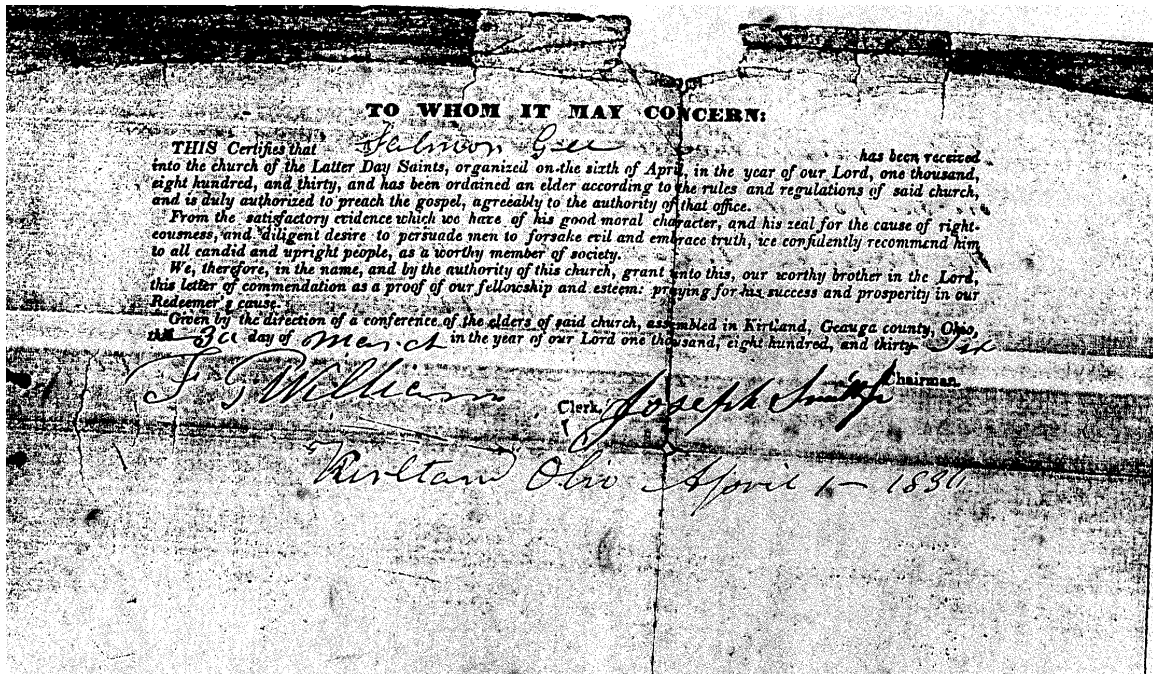 TO WHOM IT MAY CONCERN:
THIS Certifies that Salmon Gee has been received
into the church of the Latter Day Saints, organized on the sixth of April, in the year of our Lord, one thousand,
eight hundred, and thirty, and has been ordained an elder according to the rules and regulations of said church,
and is duly authorized to preach the gospel, agreeably to the authority of that office.
From the satisfactory evidence which we have of his good moral character, and his zeal for the cause of right-
eousness, and diligent desire to persuade men to forsake evil and embrace truth, we confidently recommend him
to all candid and upright people, as a worthy member of society.
We, therefore, in the name, and by the authority of this church, grant unto this, our worthy brother in the Lord,
this letter of commendation as a proof of our fellowship and esteem: praying for his success and prosperity in our
Redeemer's cause.
Given by the direction of a conference of the elders of said church, assembled in Kirtland, Geauga county, Ohio,
day of March in the year of our Lord one thousand, eight hundred, and thirty Six
Chairman.
F G Williams Clerk, Joseph Smith Jr
Kirtland Ohio April 1 — 1836